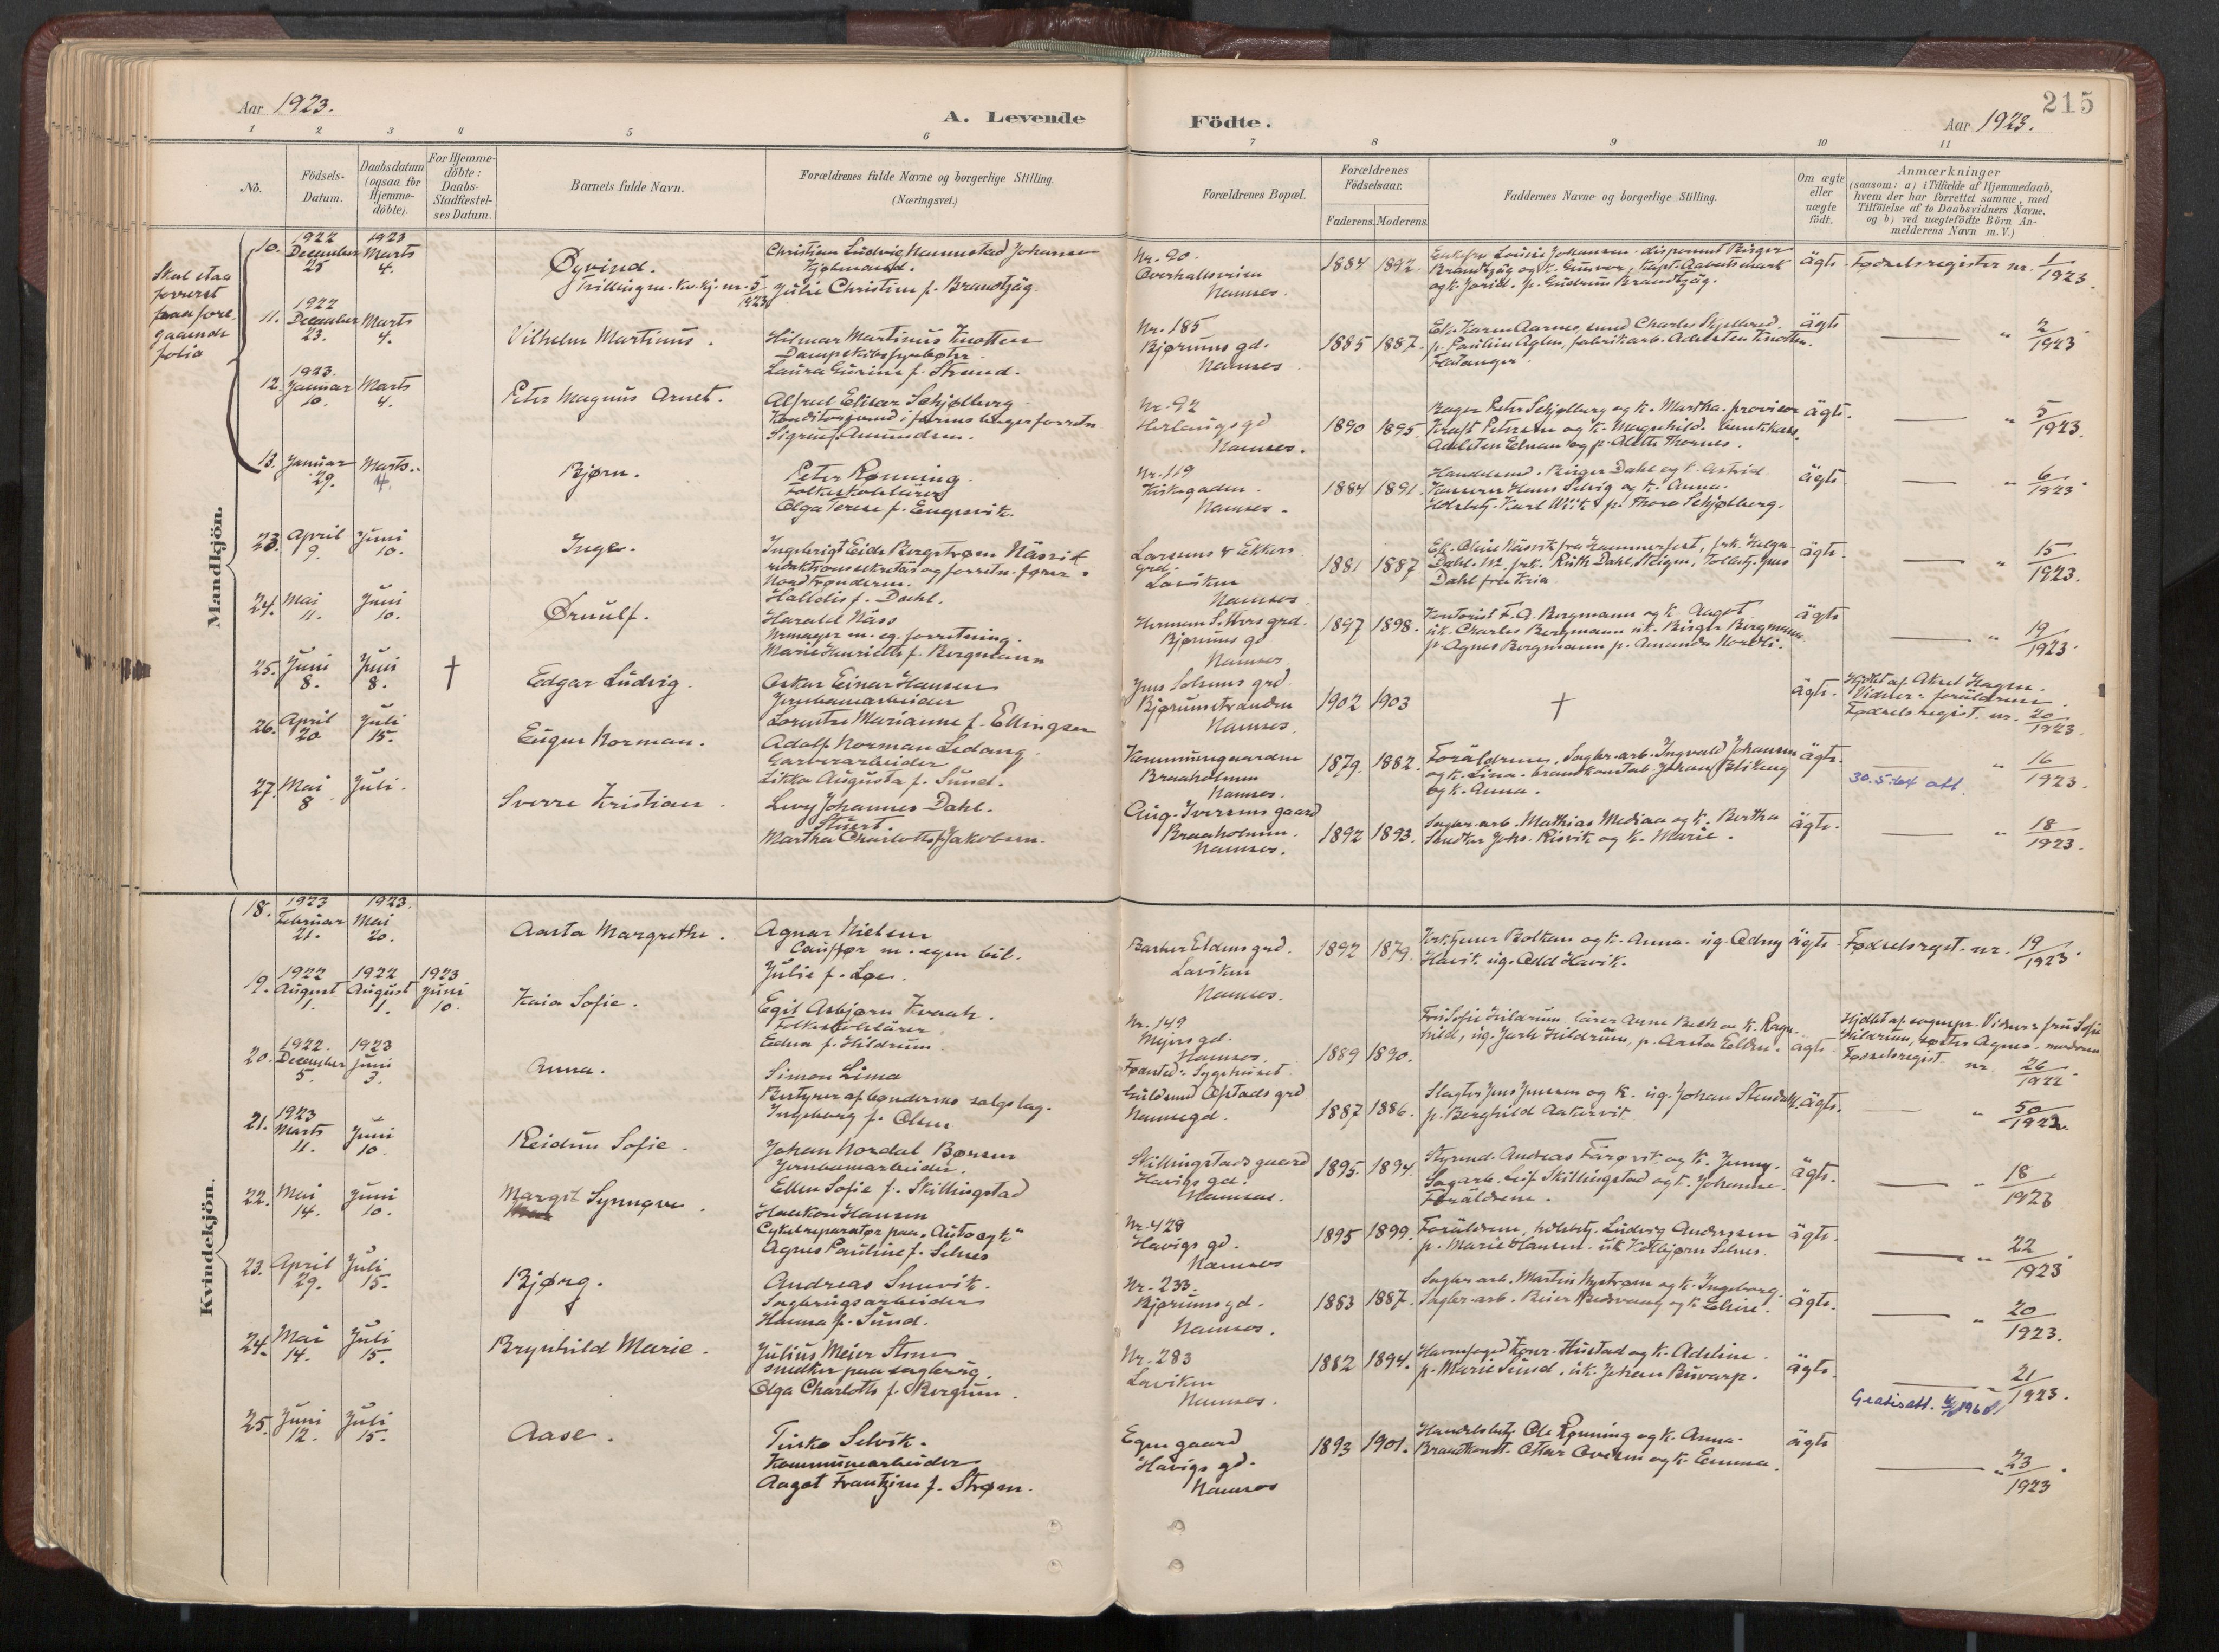 Aar 1923.
A. Levende
Födte.
Aar 1923.
215
1 2 3 4 5 6 7 8 9 10 11
No.
Födsels-Datum.
Daabsdatum (ogsaa for Hjemme-döbte).
For Hjemme-döbte: Daabs-Stadfæstel-ses Datum.
Barnets fulde Navn.
Forældrenes fulde Navne og borgerlige Stilling.
(Næringsvei.)
Forældrenes Bopæl.
Forældrenes Födselsaar.
Faderens. Moderens.
Faddernes Navne og borgerlige Stilling.
Om ægte eller uægte födt.
Anmærkninger
(saasom: a) i Tilfælde af Hjemmedaab,
hvem der har forrettet samme, med
Tilföielse af to Daabsvidners Navne,
og b) ved uægtefödte Börn An-
melderens Navn m. V.)
Skal staa
forrest
paa fore-
gaaende
folio
Mandkjön.
10. 1922 December 25 1923 Marts 4.
Øyvind.
Tvillingm. Kv. kj. nr. 5 1923
Christian Ludvig Hammestad Johansen
Julie Christine f. Brandtzäg.
Nr. 20.
Overhallsveien
Namsos.
1884 1892.
Enkefru Louise Johansen. disponent Birger
Brandtzäg og k. Gunvor,
og k. Jorid. p. Gudrun Brandtzäg.
ägte
Fødselsregister nr. 1/1923.
11. 1922 December 23. Marts 4.
Vilhelm Martinus.
Hilmar Martinus Knotten
Dampskibsfyrbøter.
Laura Gurine f. Strand.
Nr. 185
Bjørums gd.
Namsos
1885 1887.
p. Pauline Aglen, fabrikarb. Adelsten Knotten.
Flatanger.
ägte
" 2/1923.
12. 1923. Januar 10. Marts 4.
Peter Magnus Arnet.
Alfred Elisar Schjølberg
Konditorsvend i farens bagerforretn
Sigrun f. Amundsen.
Nr. 92
Herlaugs gd
Namsos.
1890 1895
Bager Peter Schjølberg og k. Martha. provisor
Kraft Petersen og k. Magnhild. bankkass.
Adelsten Edman og p. Alette Thornes.
ägte.
" 5/1923.
13. Januar 29. Marts. 4.
Bjørn.
Peter Rønning.
Folkeskolelärer
Olga Terese f. Engesvik.
Nr. 119
Kirkegaden.
Namsos.
1884 1891.
Handelsmd. Birger Dahl og k. Astrid
Kasserer Hans Selvig og k. Anna.
Hdlsbetj. Karl Wiik & p. Thora Schjølberg.
ägte
" 6/1923.
23. April 9. Juni 10.
Inger.
Ingebrigt Eide Bergstrøm Näsvik
redaktionssekretär og forretn. fører.
Nordtrønderen.
Halldis f. Dahl.
Larsens & Ekkers
grd.
Laviken
Namsos
1881 1887
Ek. Oline Näsvik fra Hammerfest, frk. Helga
Dahl. M. frk. Ruth Dahl, Steigen, Tollbetj. Jens
Dahl fra Kria
ägte.
" 15/1923.
24. Mai 11. Juni 10.
Ørnulf.
Harald Näss
Urmager m. eg. forretning.
Marie Henriette f. Bergmann
Herman Sellers grd.
Bjørums gd
Namsos
1897 1898.
Kontorist F. A. Bergmann og k. Aagot
uk. Charles Bergmann uk. Birger Bergmann
p. Agnes Bergmann p. Amanda Nordli.
ägte
" 19/1923.
25. Juni 8. Juni 8. †
Edgar Ludvig.
Oskar Einar Hansen
Jernbanearbeider
Lorentse Marianne f. Ellingsen
Jens Solums grd
Bjørumstranden
Namsos.
1902 1903
†
ägte.
Hjdbt af Aksel Hagen.
Vidner: foräldrene.
Fødselsregist. nr. 20/1923.
26. April 20 Juli 15.
Eugen Norman.
Adolf Norman Ledang.
Garverarbeider
Likka Augusta f. Sund.
Kommunegaarden
Braaholmen
Namsos.
1879. 1882.
Foräldrene, Sagbr.arb. Ingvald Johansen
og k. Lina. brandkonstab. Johan Blikseng
og k. Anna.
ägte.
30.5.64 att.
" 16/1923.
27. Mai 8 Juli.
Sverre Kristian.
Levy Johannes Dahl.
Stuert.
Martha Charlotte f. Jakobsen.
Aug. Iversens gaard
Braaholmen.
Namsos.
1892 1893.
Sagbr. arb. Mathias Mediaa og k. Bertha
Snedker Johs. Risvik og k. Marie.
ägte.
" 18/1923.
Kvindekjön.
18. 1923 Februar 21. 1923. Mai 20.
Aasta Margrethe.
Agnar Nielsen
Cauffør m. egen bil.
Julie f. Løe.
Barber Eldens grd.
Laviken
Namsos.
1892 1879.
Bolkan og k. Anna. ug. Odny
Havik ug. Odd Havik.
ägte
Fødselsregst. nr. 19/1923.
9. 1922 August 1. 1922 August 1. 1923 Juni 10.
Kaia Sofie.
Egil Asbjørn Kvaah.
Folkeskolelärer.
Edna f. Hildrum
Nr. 149
Myrs gd.
Namsos.
Fødested: Sygehuset.
1889 1890.
Fru Sofie Hildrum, lärer Arne Beck og k. Ragn-
hild, ug. Jarle Hildrum, p. Aasta Elden.
ägte.
Hjdbt af sognepr. Vidner: fru Sofie
Hildrum, søster Agnes.
Fødselsregist. nr. 26/1922.
20. 1922. December 5. 1923 Juni 3.
Anna.
Simon Lima
Bestyrer af bøndernes salgslag.
Ingeborg f. Olsen
Guldsmd Opstads grd
Namsegd.
1887 1886.
Slagter Jens Jenssen og k. ug. Johan
p. Berghild Aakervik
ägte.
" 50/1922.
21. 1923 Marts 11. Juni 10.
Reidun Sofie.
Johan Nordal Børsen
Jernbanearbeider.
Ellen Sofie f. Skillingstad
Skillingstads gaard
Havigs gd.
Namsos.
1895. 1894.
Styrmd. Andreas Färøvik og k. Jenny.
Sagarb. Leif Skillingstad og k. Johanne.
Foräldrene.
ägte.
" 18/1923
22. Mai 14. Juni 10.
Margit Synnøve.
Haakon Hansen
Cykelreparatør paa "Auto og K"
Agnes Pauline f. Selnes
Nr. 428
Havigs gd.
Namsos
1895 1899.
Foräldrene, hdlsbetj. Ludvig Andressen
p. Marie Hansen. uk Kolbjørn Selnes.
ägte.
" 22/1923.
23. April 29. Juli 15.
Bjørg.
Andreas Snevik.
Sagbrugsarbeider
Hanna f. Sund.
Nr. 233.
Bjørums gd.
Namsos.
1883 1887.
Sagbr arb. Martin Nystrøm og k. Ingeborg.
Sagbr. arb. Beier og k. Eline.
ägte.
" 20/1923.
24. Mai 14. Juli 15.
Brynhild Marie.
Julius Meier Strøm
snedker paa sagbrug.
Olga Charlotte f. Bergum.
Nr. 283
Laviken
Namsos.
1882 1894.
Havnefoged Konr. Hustad og k. Adeline.
p. Marie Sund. uk. Johan Buvarp.
ägte.
" 21/1923.
Gratisatt.
25. Juni 12. Juli 15.
Aase.
Selvik.
Kommunearbeider
Aagot Frantzine f. Strøm.
Egen gaard
Havigs gd.
Namsos
1893 1901.
Handelsbetj. Ole Rønning og k. Anna.
Brandkonst. Ottar Overen og k. Emma.
ägte
" 23/1923.